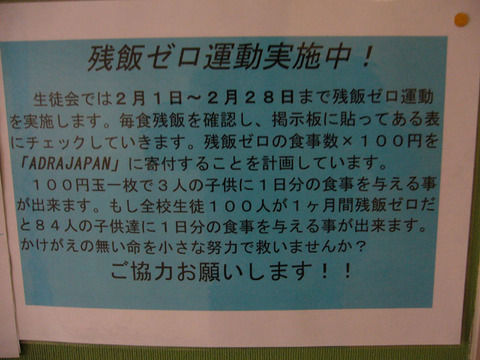 残飯ゼロ運動実施中！
生徒会では２月１日～２月２８日まで残飯ゼロ運動
を実施します。毎食残飯を確認し、掲示板に貼ってある表
にチェックしていきます。残飯ゼロの食事数×１００円を
「ADRAJAPAN」に寄付することを計画しています。
１００円玉一枚で３人の子供に１日分の食事を与える事
が出来ます。もし全校生徒１００人が１ヶ月間残飯ゼロだ
と８４人の子供達に１日分の食事を与える事が出来ます。
かけがえの無い命を小さな努力で救いませんか？
ご協力お願いします！！